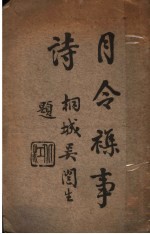 月令雜事
詩
桐城吳闓生
題